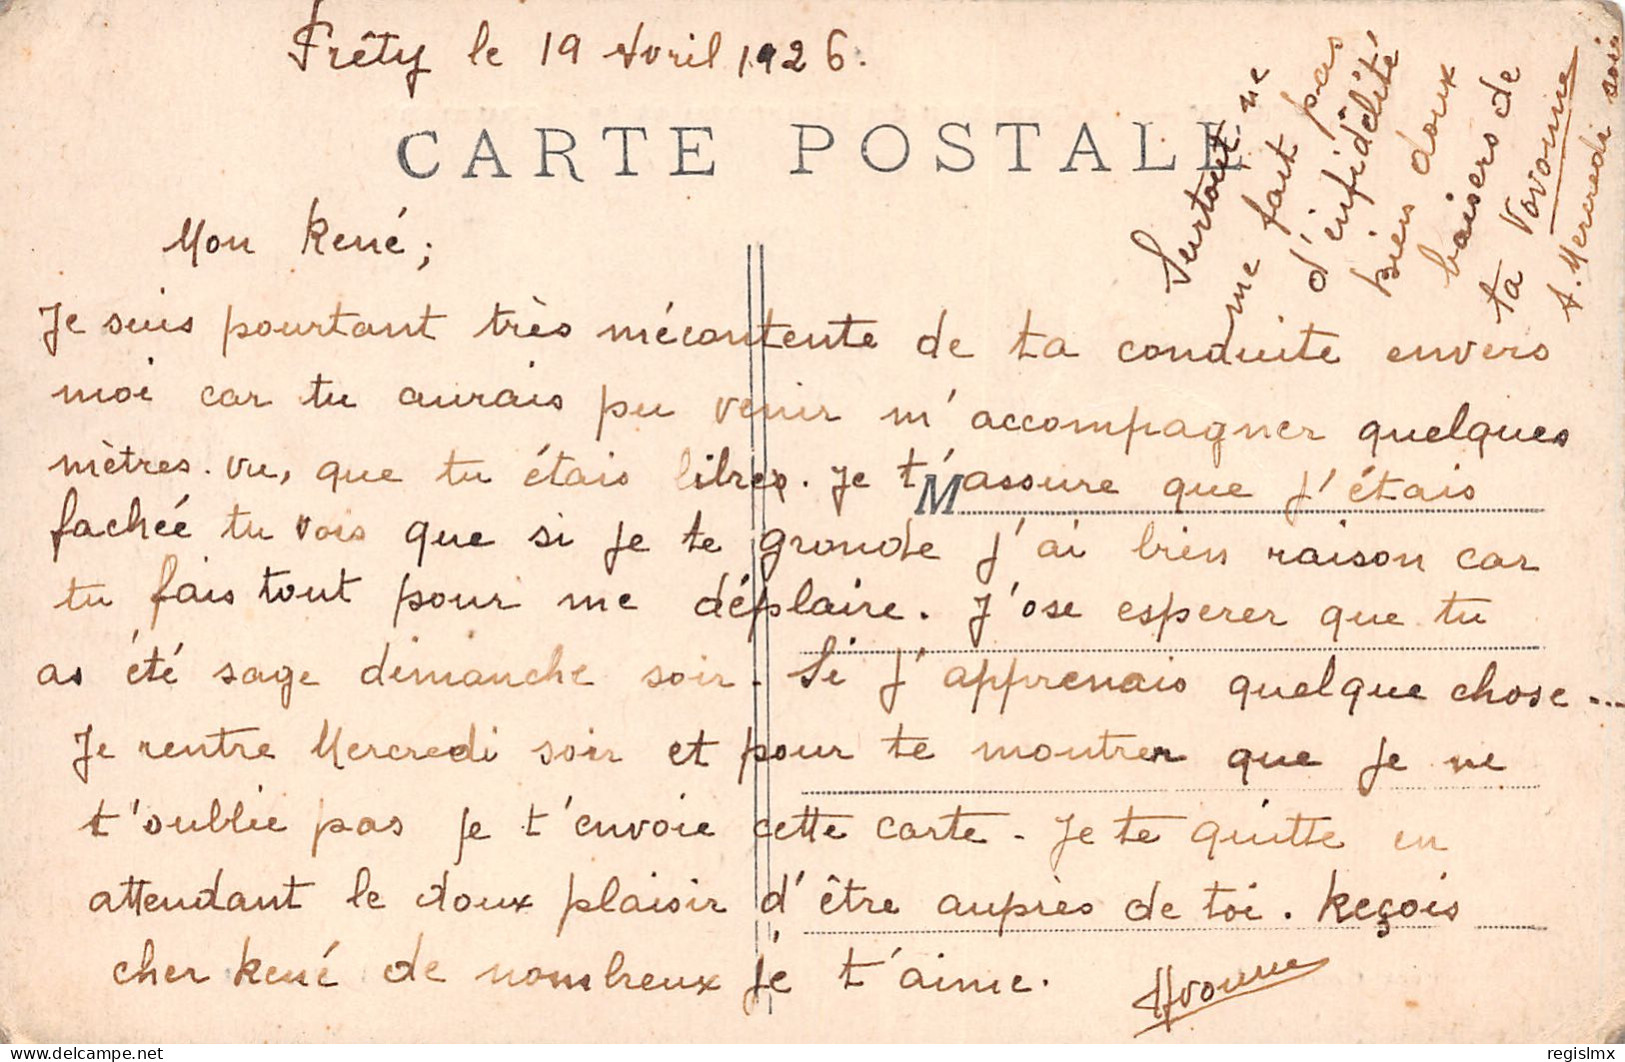 Frêty le 19 Avril 1926.
CARTE POSTALE
Mon René;
Je suis pourtant très mécontente de ta conduite envers
moi car tu aurais pu venir m'accompagner quelques
mètres. vu, que tu étais libres. Je t'assure que j'étais
M
fachée tu vois que si je te gronde j'ai bien raison car
tu fais tout pour me déplaire. J'ose esperer que tu
as été sage dimanche soir. Si j'apprenais quelque chose...
Je rentre Mercredi soir et pour te montrer que je ne
t'oublie pas je t'envoie cette carte. Je te quitte en
attendant le doux plaisir d'être auprès de toi. Reçois
cher René de nombreux je t'aime.
Yvonne
Surtout ne
me fait pas
d'infidélité
Bien doux
baisers de
ta Vovonne
A. Mercredi soir
delcampe.net
regislmx